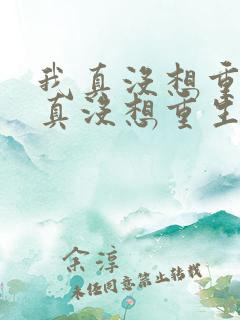 我真没想重
真没想重生
余淳
未经同意禁止转载